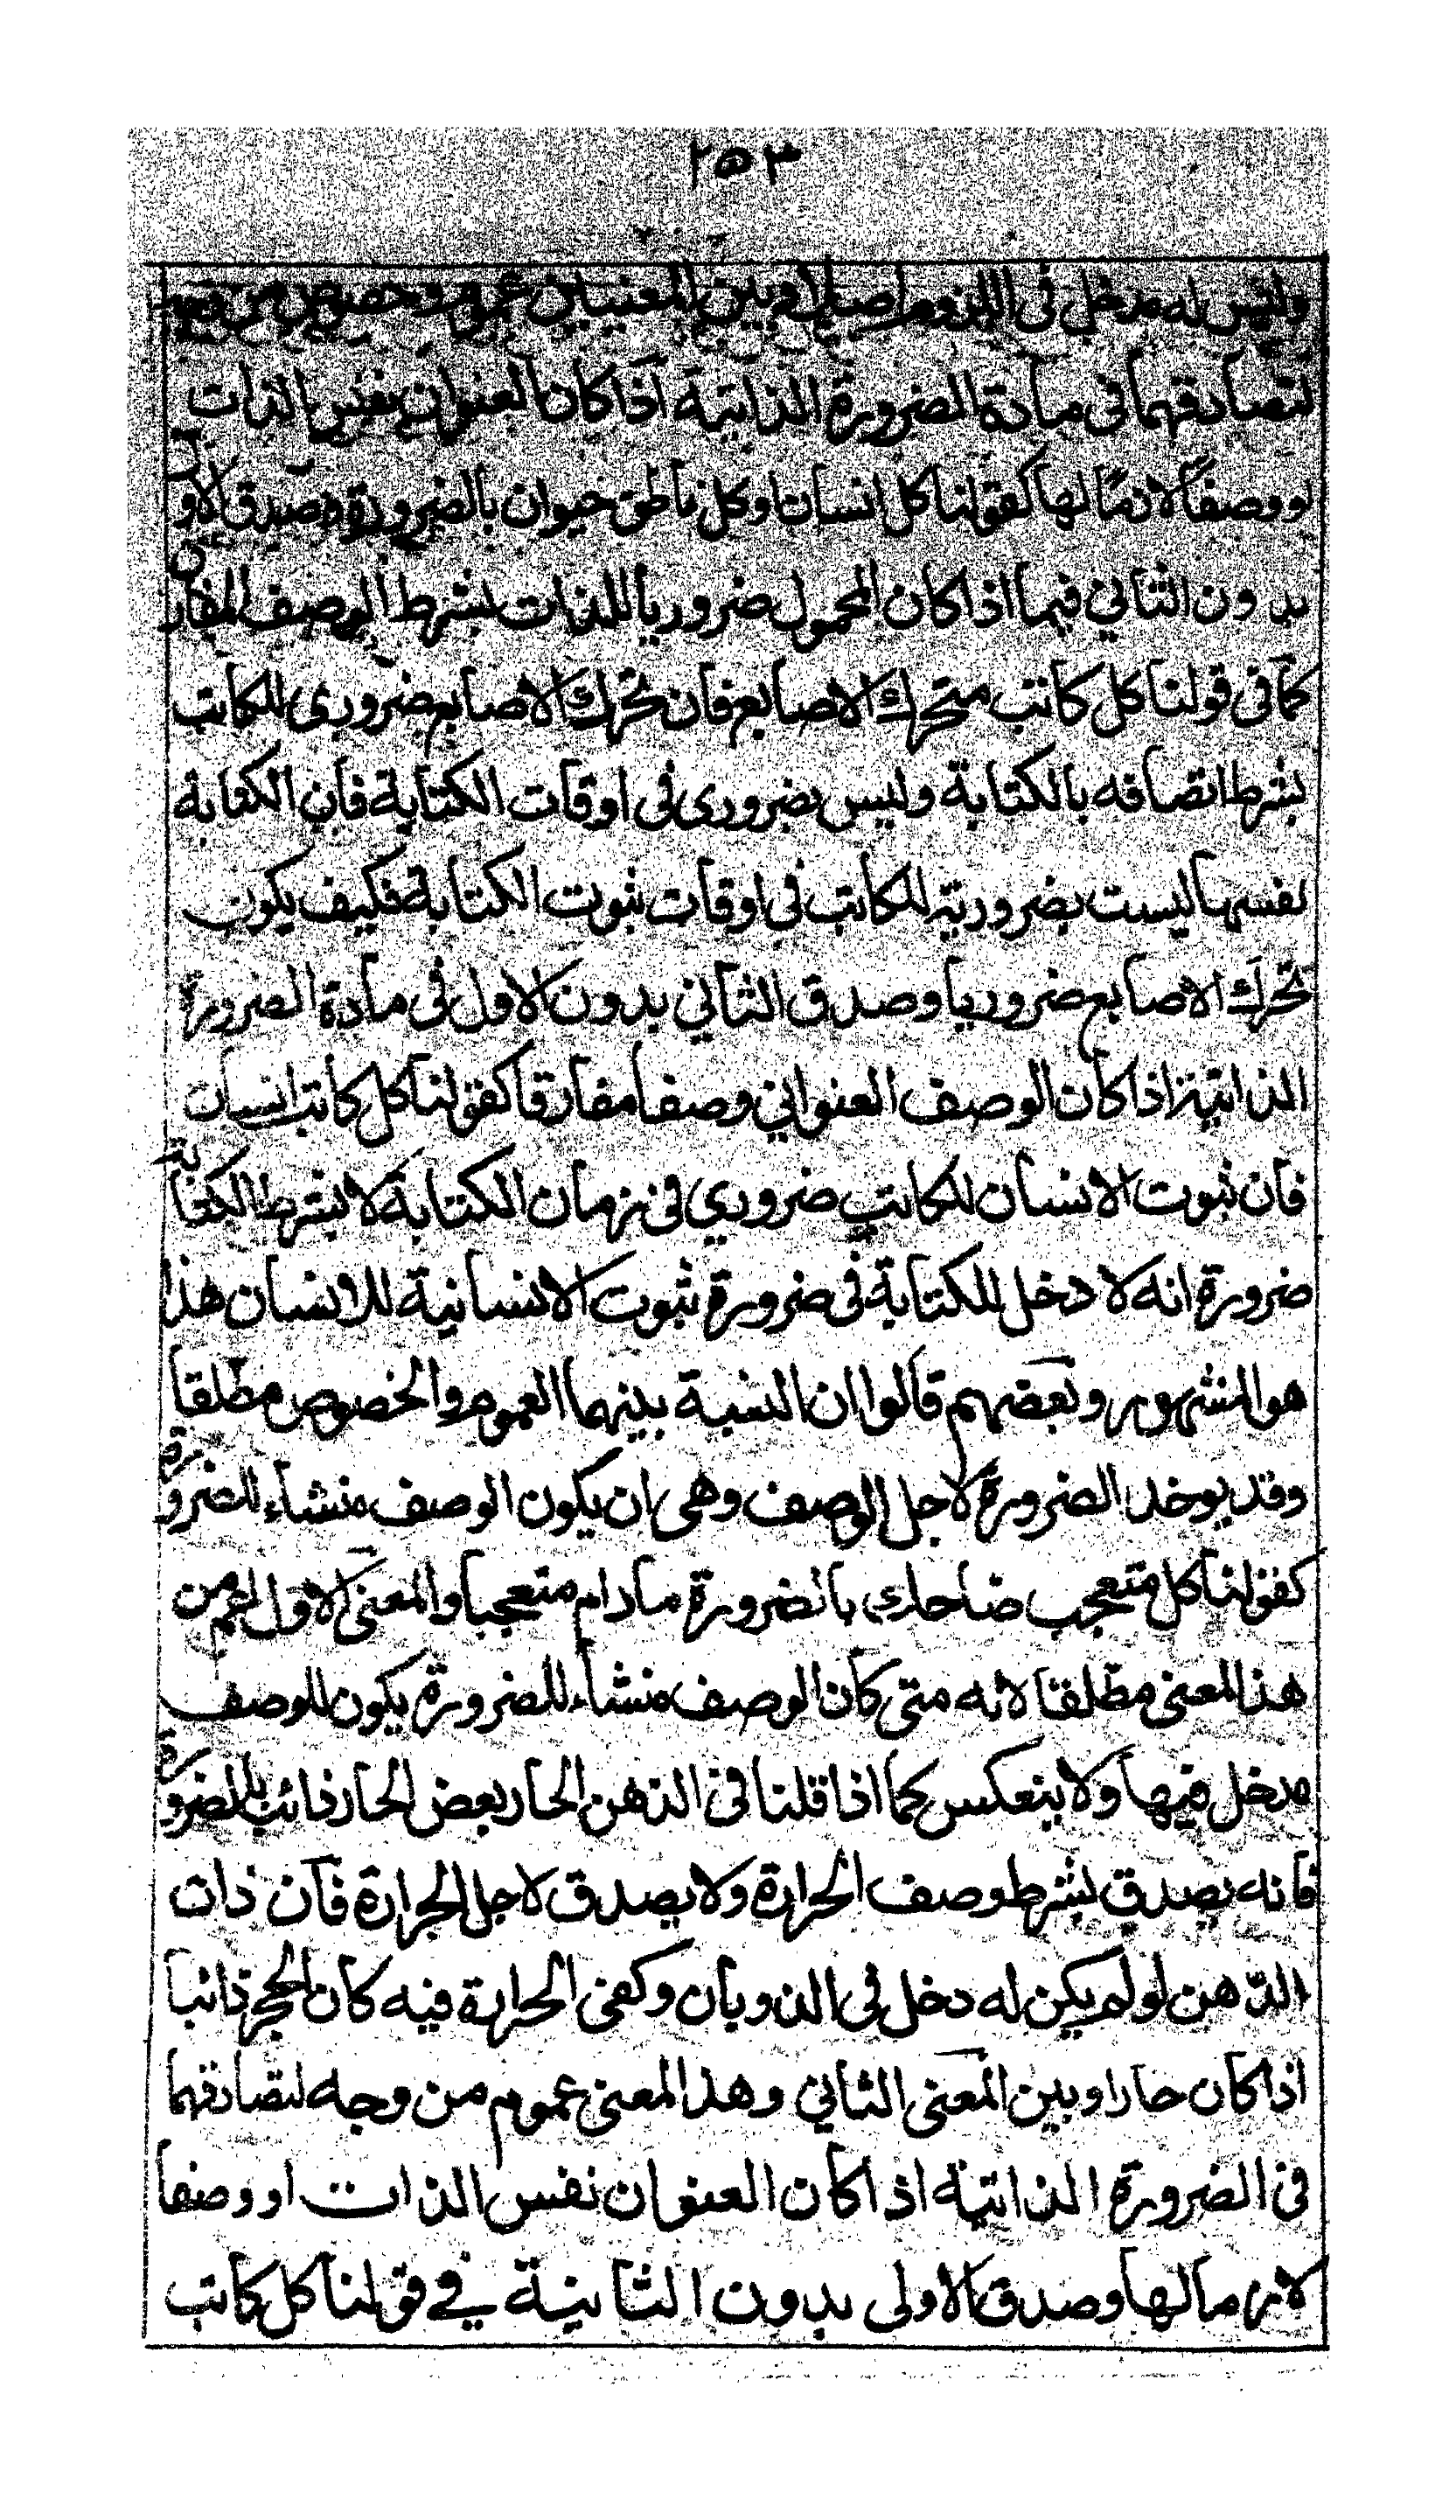 ٢٥٣
وليس له مدخل في اللزوم اصلا وبين المعنيين عموم وخصوص من وجه
لتصادقهما في مادة الضرورة الذاتية اذا كان العنوان نفس الذات
او وصفا لازما لها كقولنا كل انسان او كل ناطق حيوان بالضرورة وصدق الاول
بدون الثاني فيما اذا كان المحمول ضروريا للذات بشرط الوصف المفارق
كما في قولنا كل كاتب متحرك الاصابع فان تحرك الاصابع ضروري للكاتب
بشرط اتصافه بالكتابة وليس بضروري في اوقات الكتابة فان الكتابة
نفسها ليست بضرورية للكاتب في اوقات ثبوت الكتابة فكيف يكون
تحرك الاصابع ضروريا وصدق الثاني بدون الاول في مادة الضرورة
الذاتية اذا كان الوصف العنواني وصفا مفارقا كقولنا كل كاتب انسان
فان ثبوت الانسان للكاتب ضروري في زمان الكتابة لا بشرط الكتابة
ضرورة انه لا دخل للكتابة في ضرورة ثبوت الانسانية للانسان هذا
هو المشهور وبعضهم قالوا ان النسبة بينهما العموم والخصوص مطلقا
وقد يوخد الضرورة لاجل الوصف وهي ان يكون الوصف منشاء للضرورة
كقولنا كل متعجب ضاحك بالضرورة مادام متعجبا والمعنى الاول اعم من
هذا المعنى مطلقا لانه متى كان الوصف منشاء للضرورة يكون للوصف
مدخل فيها ولا ينعكس كما اذا قلنا في الذهن الحار بعض الحار ذائب بالضرورة
فانه يصدق بشرط وصف الحرارة ولا يصدق لاجل الحرارة فان ذات
الدّهن لو لم يكن له دخل في الذوبان وكفى الحرارة فيه كان الحجر ذائبا
اذا كان حارا وبين المعنى الثاني وهذا المعنى عموم من وجه لتصادقهما
في الضرورة الذاتية اذا كان العنوان نفس الذات او وصفا
لازما لها وصدق الاولى بدون الثانية في قولنا كل كاتب